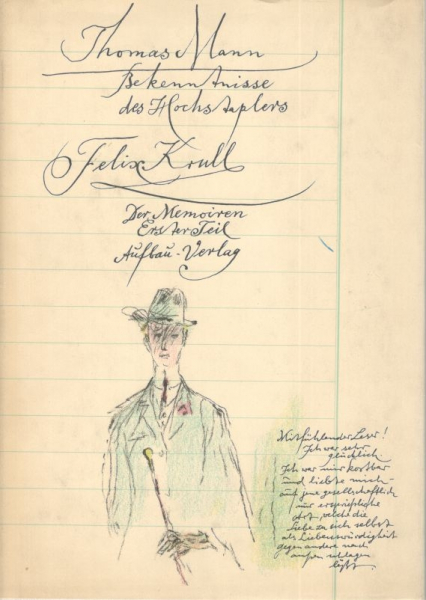 Thomas Mann
Bekenntnisse
des Hochstaplers
Felix Krull
Der Memoiren
Erster Teil
Aufbau-Verlag
Mitfühlender Leser!
Ich war sehr
glücklich
Ich war mir kostbar
und liebte mich -
auf jene gesellschaftlich
nur ersprießliche
Art, welche die
Liebe zu sich selbst
als Liebenswürdigkeit
gegen andere nach
außen schlagen
läßt.